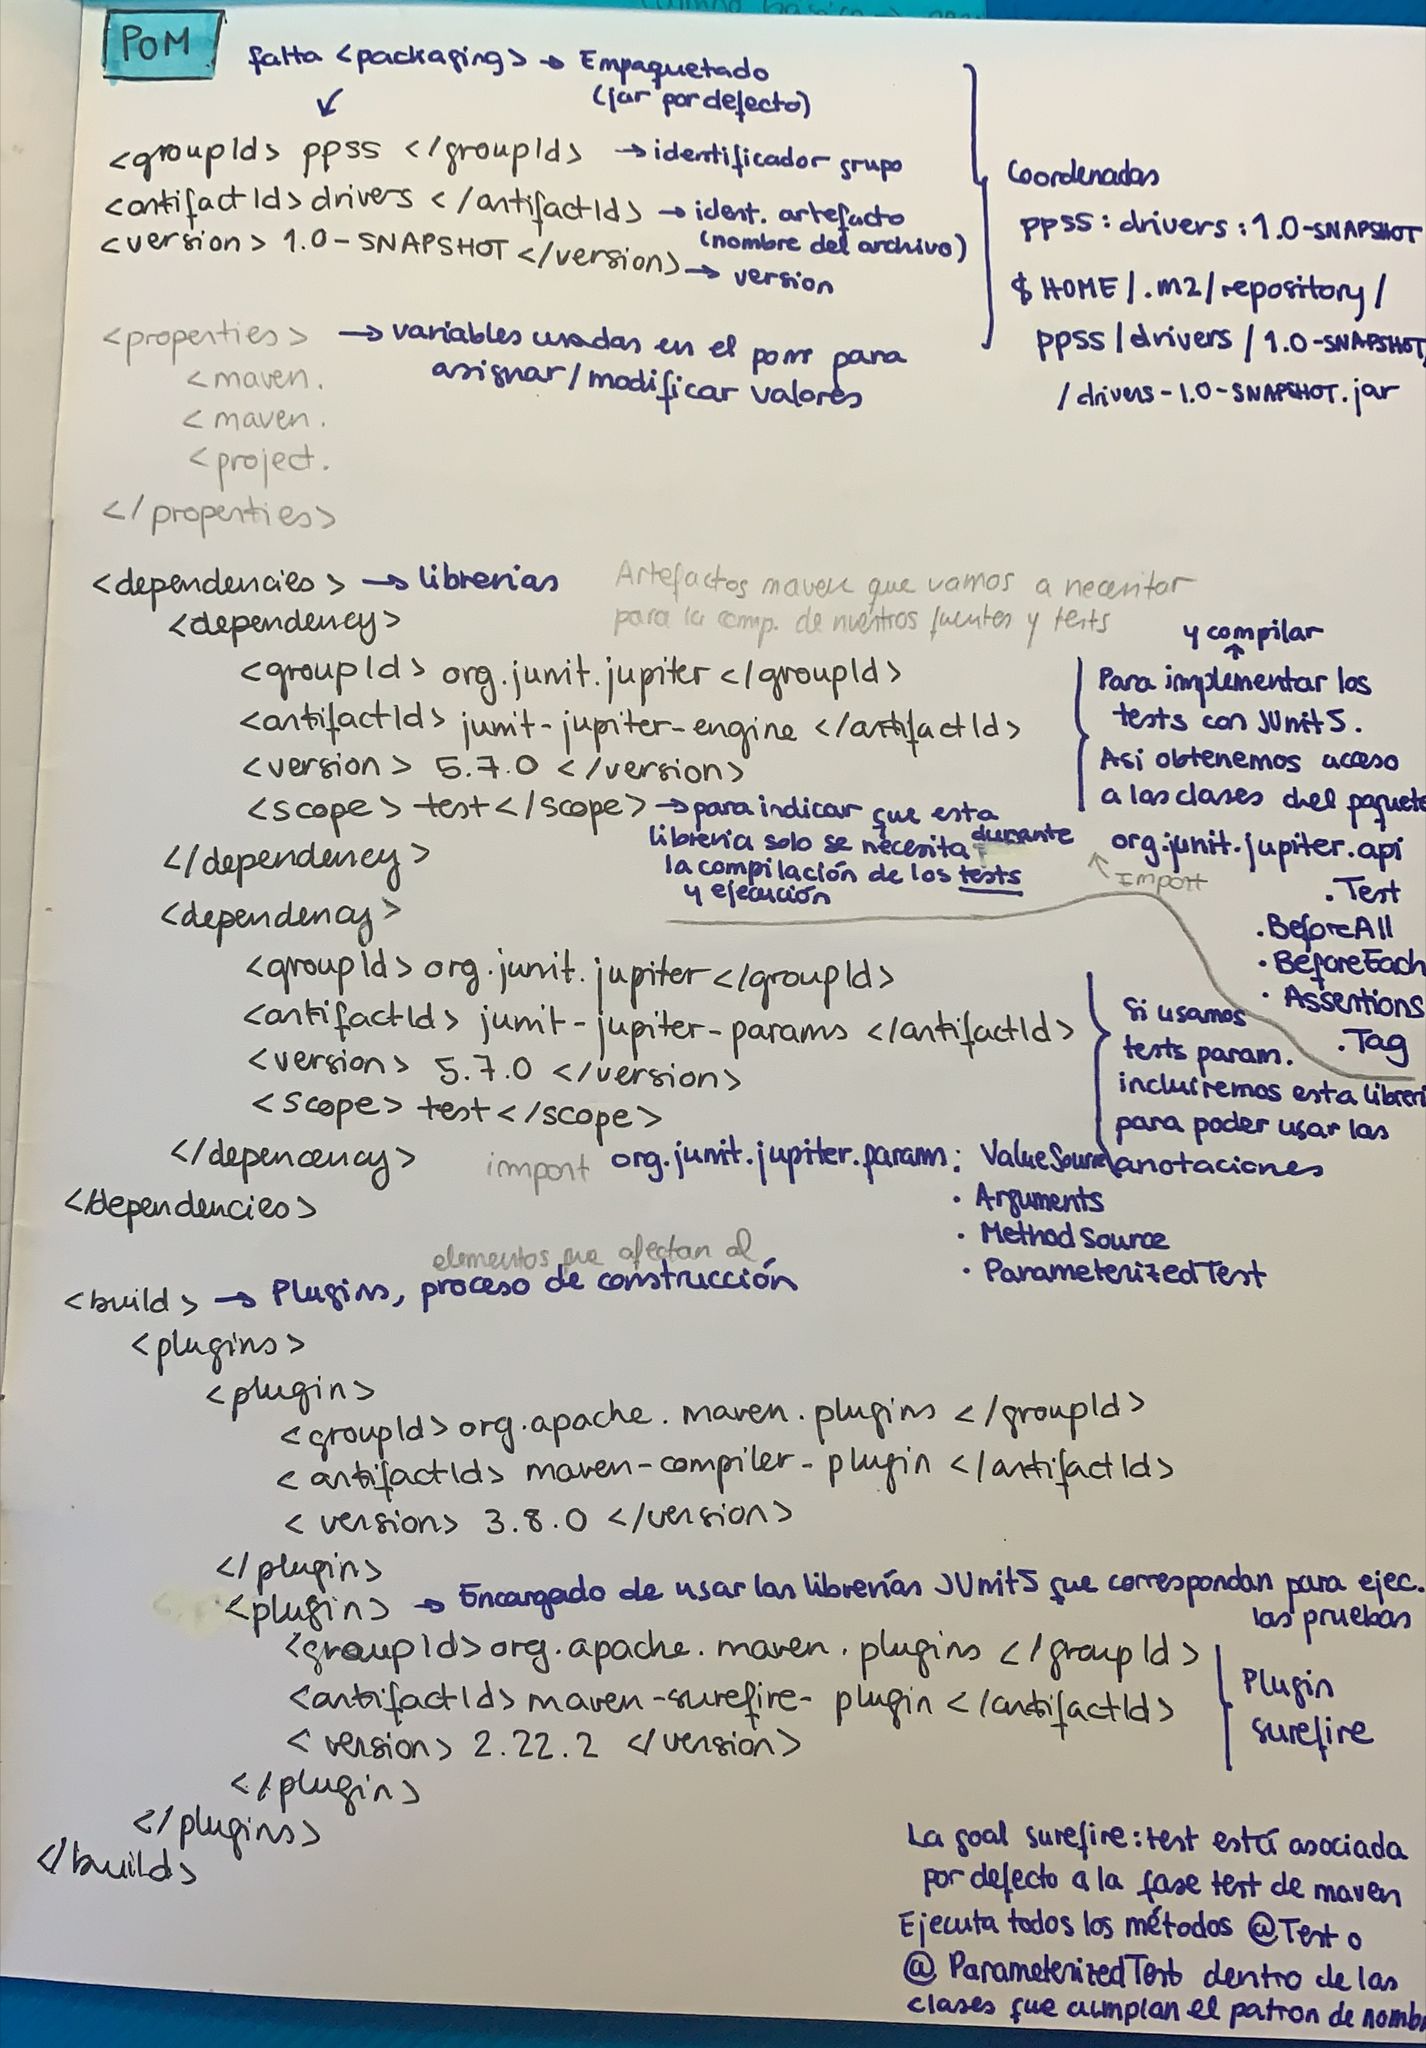 POM
falta <packaging> → Empaquetado
(jar por defecto)
<groupId> ppss </groupId> → identificador grupo
<artifactId> drivers </artifactId> → ident. artefacto
(nombre del archivo)
<version> 1.0-SNAPSHOT </version> → version
Coordenadas
ppss:drivers:1.0-SNAPSHOT
$HOME/.m2/repository/
ppss/drivers/1.0-SNAPSHOT
/drivers-1.0-SNAPSHOT.jar
<properties> → variables usadas en el pom para
asignar/modificar valores
<maven.
<maven.
<project.
</properties>
<dependencies> → librerias
Artefactos maven que vamos a necesitar
para la comp. de nuestros fuentes y tests
<dependency>
<groupId> org.junit.jupiter </groupId>
<artifactId> junit-jupiter-engine </artifactId>
<version> 5.7.0 </version>
<scope> test </scope> → para indicar que esta
libreria solo se necesita durante
la compilación de los tests
y ejecución
</dependency>
y compilar
Para implementar los
tests con JUnit5.
Así obtenemos acceso
a las clases del paquete
org.junit.jupiter.api
Import
. Test
. BeforeAll
. BeforeEach
. Assertions
. Tag
<dependency>
<groupId> org.junit.jupiter </groupId>
<artifactId> junit-jupiter-params </artifactId>
<version> 5.7.0 </version>
<scope> test </scope>
</dependency>
Si usamos
tests param.
incluiremos esta libreri
para poder usar las
anotaciones
import org.junit.jupiter.params: ValueSource
. Arguments
. MethodSource
. ParameterizedTest
</dependencies>
elementos que afectan al
<build> → Plugins, proceso de construcción
<plugins>
<plugin>
<groupId> org.apache.maven.plugins </groupId>
<artifactId> maven-compiler-plugin </artifactId>
<version> 3.8.0 </version>
</plugin>
<plugin> → Encargado de usar las librerías JUnit5 que correspondan para ejec.
las pruebas
<groupId> org.apache.maven.plugins </groupId>
<artifactId> maven-surefire-plugin </artifactId>
<version> 2.22.2 </version>
Plugin
surefire
</plugin>
</plugins>
</build>
La goal surefire:test está asociada
por defecto a la fase test de maven
Ejecuta todos los métodos @Test o
@ParameterizedTest dentro de las
clases que cumplan el patron de nomb